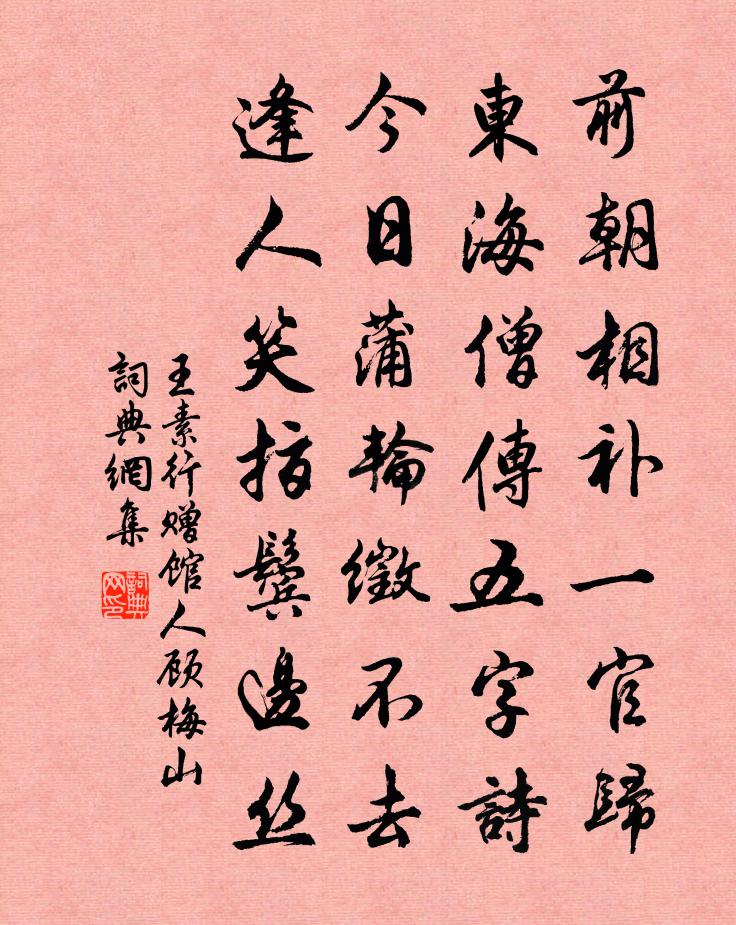 前朝相补一官歸
東海僧傳五字詩
今日蒲輪徵不去
逢人笑指鬓邊丝
王素行赠馆人顾梅山
詞典網集
詞典网印